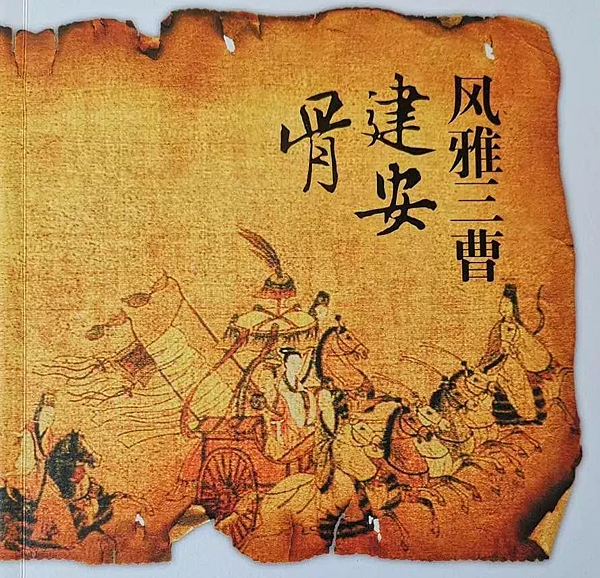 风雅三曹
建安
骨